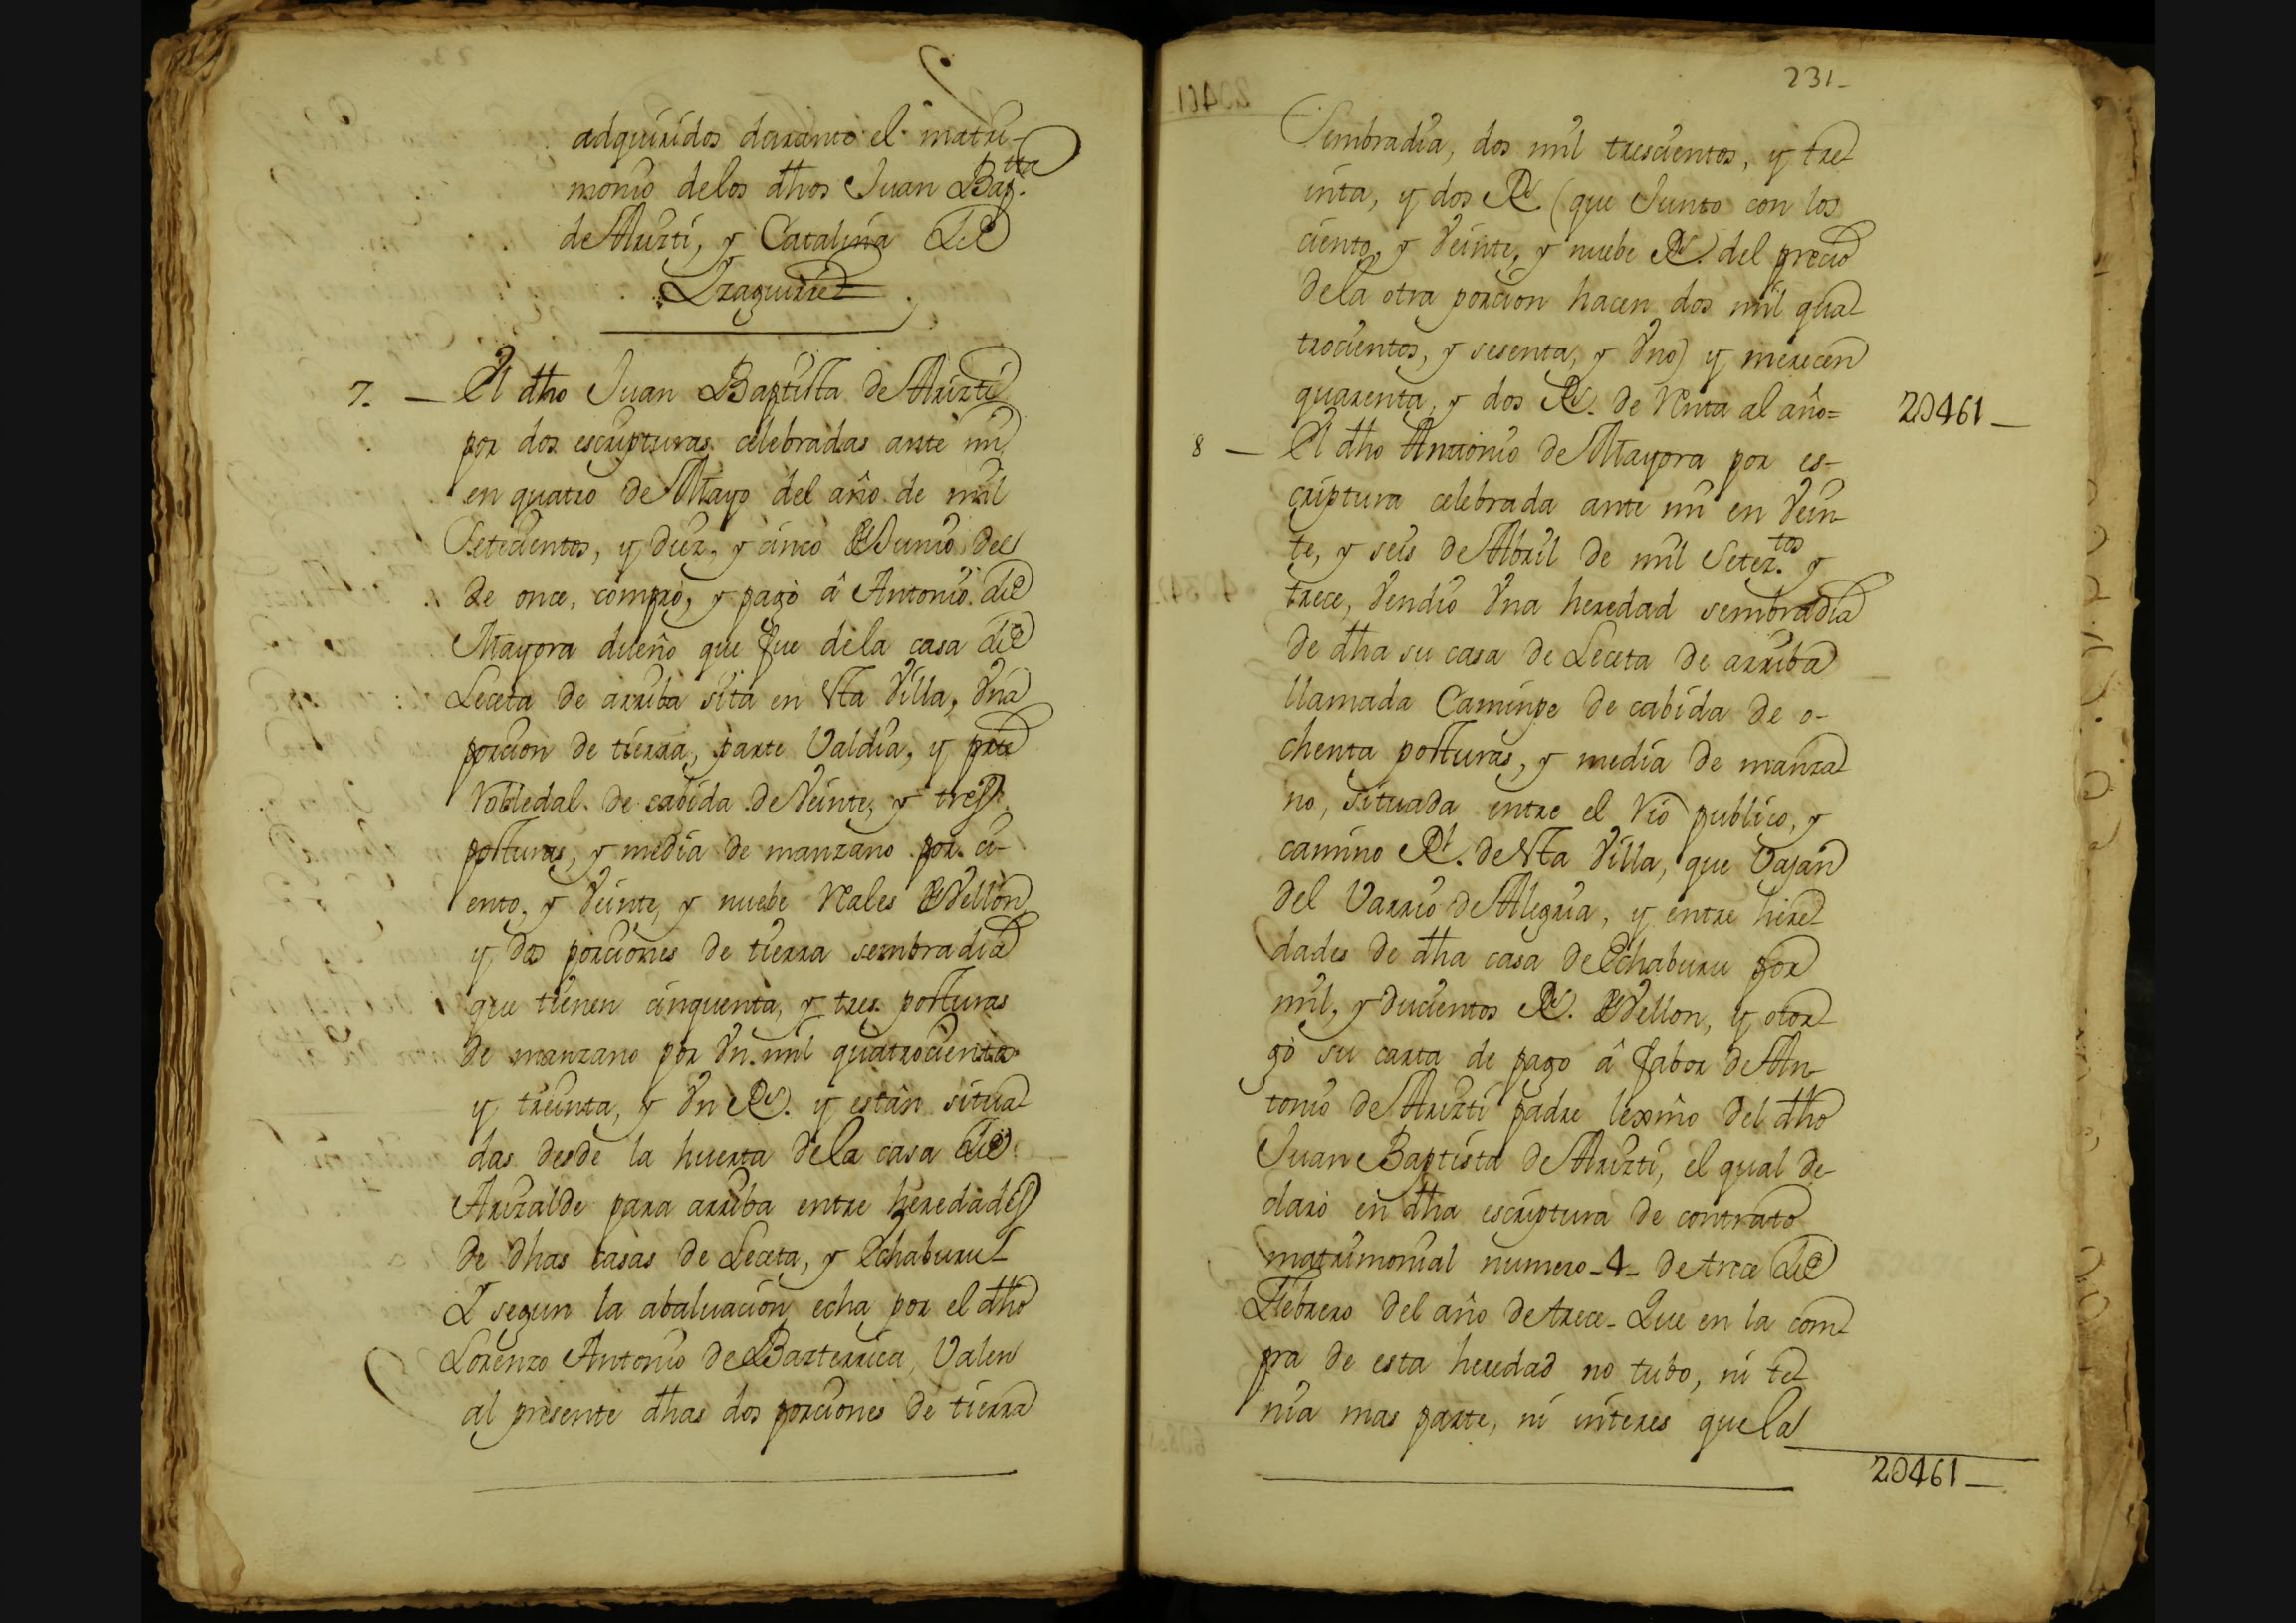 adquiridos durante el matri-
monio delos dhos Juan Bap.tta
de Arizti, y Catalina de
Yzaguirre
7. — El dho Juan Baptista de Arizti
por dos escripturas celebradas ante mi
en quatro de Mayo del año de mil
Setecientos, y diez, y cinco de Junio del
de onze, compró, y pagó â Antonio de
Mayora dueño que fue dela casa de
Leceta de arriba sita en esta Villa, Vna
porcion de tierra, parte Valdia, y parte
Robledal de cabida de Veinte, y tres
posturas, y media de manzano por ci-
ento, y Veinte, y nuebe Reales de Vellon,
y dos porciones de tierra sembradia
que tienen cinquenta, y tres posturas
de manzano por Vn mil quatrocientos
y treinta, y Vn Rs. y están situa-
das desde la huerta dela casa de
Arizalde para arriba entre heredades
de dhas casas de Leceta, y Echaburu
Y segun la abaluacion echa por el dho
Lorenzo Antonio de Bazterrica, Valen
al presente dhas dos porciones de tierra
231-
Sembradia, dos mil trescientos, y tre-
inta, y dos Rs. (que Junto con los
ciento, y Veinte, y nuebe Rs. del precio
dela otra porcion hacen dos mil qua-
trocientos, y sesenta, y Vno) y merecen
quarenta, y dos Rs. de renta al año=
2D461 —
8 — El dho Antonio de Mayora por es-
criptura celebrada ante mi en Vein-
te, y seis de Abril de mil Setez.tos y
trece, Vendio Vna heredad sembradia
de dha su casa de Leceta de arriba
llamada Caminpe de cabida de o-
chenta posturas, y media de manza-
no, situada entre el rio publico, y
camino Rl. de esta Villa, que Vajan
del Varrio de Alegria, y entre here-
dades de dha casa de Echaburu por
mil, y ducientos Rs. de Vellon, y otor-
gó su carta de pago â fabor de An-
tonio de Arizti padre lexmo del dho
Juan Baptista de Arizti, el qual de-
claró en dha escriptura de contrato
matrimonial numero-4- de trece de
Febrero del año de trece- Que en la com-
pra de esta heredad no tubo, ni te-
nia mas parte, ni interes que la
2D461 —